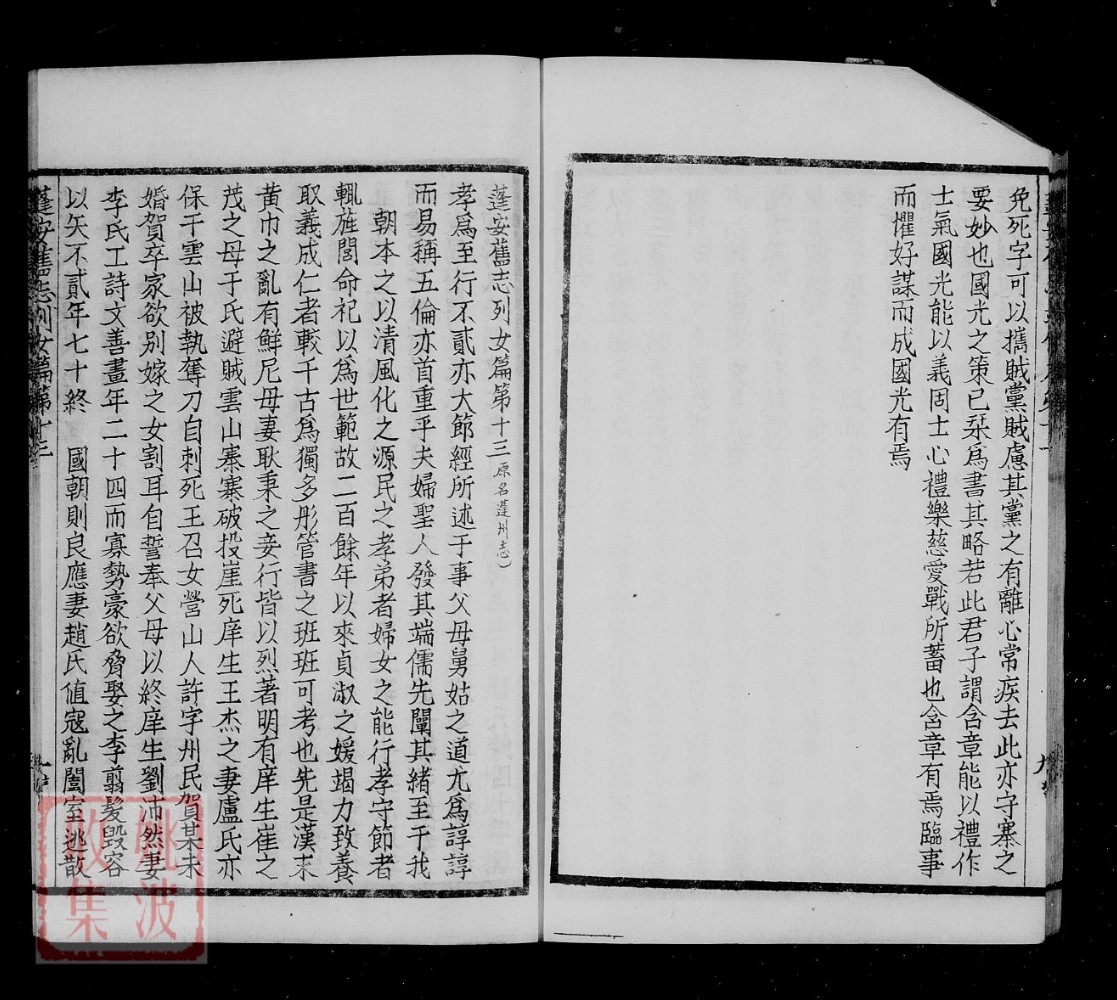 免死字可以攜賊黨賊慮其黨之有離心常疾去此亦守寨之
要妙也國光之策已琹為書其略若此君子謂含章能以禮作
士氣國光能以義固士心禮樂慈愛戰所蓄也含章有焉臨事
而懼好謀而成國光有焉
蓬安舊志列女篇第十三原名蓬州志）
孝為至行不貳亦大節經所述于事父母舅姑之道尤為諄諄
而易稱五倫亦首重乎夫婦聖人發其端儒先闡其緒至于我
朝本之以清風化之源民之孝弟者婦女之能行孝守節者
輒旌閭命祀以為世範故二百餘年以來貞淑之媛竭力致養
取義成仁者較千古為獨多彤管書之班班可考也先是漢末
黃巾之亂有鮮尼母妻耿秉之妾行皆以烈著明有庠生崔之
茂之母于氏避賊雲山寨寨破投崖死庠生王杰之妻盧氏亦
保于雲山被執奪刀自刺死王召女營山人許字州民賀某未
婚賀卒家欲別嫁之女割耳自誓奉父母以終庠生劉沛然妻
李氏工詩文善畫年二十四而寡勢豪欲脅娶之李翦髮毀容
以矢不貳年七十終　國朝則良應妻趙氏值寇亂闔室逃散
蓬安舊志列女篇第十三
砒波
收集